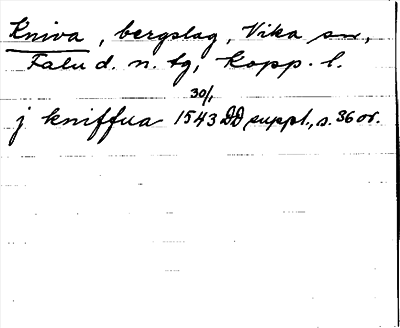 Kniva, bergslag, Vika sn,
Falu d. n. tg, Kopp. l.
30/1
j kniffua 1543 DD suppl., s. 36 or.